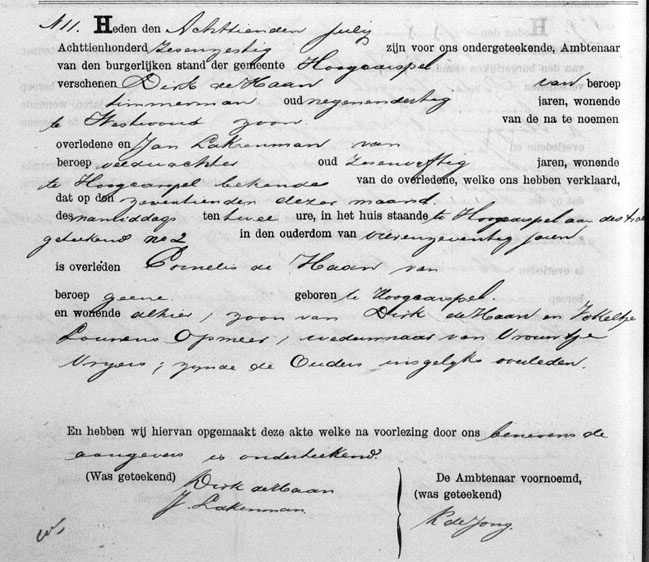 N 11. Heden den Achttienden Julij
Achttienhonderd Zesenzestig zijn voor ons ondergeteekende, Ambtenaar
van den burgerlijken stand der gemeente Hoogcarspel
verschenen Dirk de Haan van beroep
timmerman oud negenendertig jaren, wonende
te Westwoud zoon van de na te noemen
overledene en Jan Lakenman van
beroep veldwachter oud zesenvijftig jaren, wonende
te Hoogcarspel bekende van de overledene, welke ons hebben verklaard,
dat op den zeventienden dezer maand
des namiddags ten twee ure, in het huis staande te Hoogcarspel aan de straat
geteekend no 2 in den ouderdom van vierenzeventig jaren
is overleden Cornelis de Haan van
beroep geene. geboren te Hoogcarspel.
en wonende alhier, zoon van Dirk de Haan en
Lourens Opmeer, weduwnaar van Vrouwtje
; zynde de Ouders insgelyks overleden.
En hebben wij hiervan opgemaakt deze akte welke na voorlezing door ons benevens de
aangevers is onderteekend.
(Was geteekend) Dirk de Haan
J. Lakenman.
De Ambtenaar voornoemd,
(was geteekend)
K de Jong.